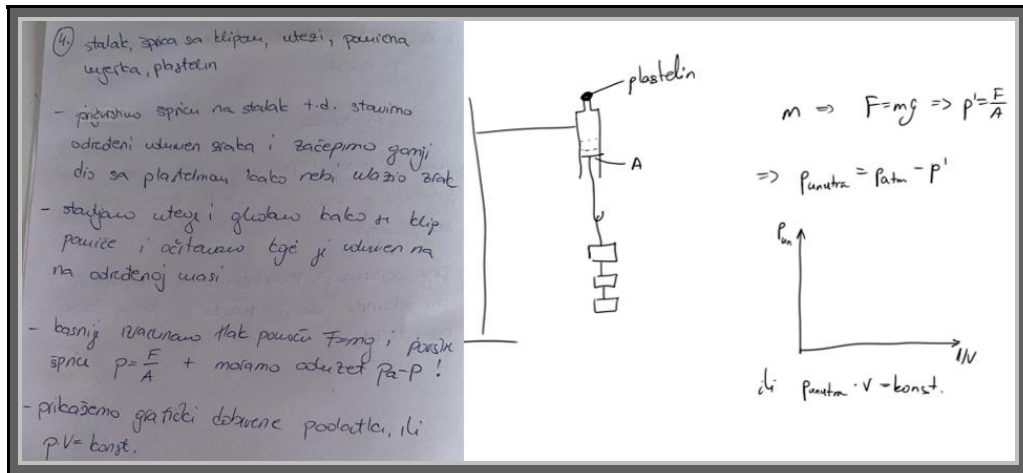 4. stalak, šprica sa klipom, utezi, pomična
mjerka, plastelin
- pričvrstimo špricu na stalak t.d. stavimo
određeni volumen zraka i začepimo gornji
dio sa plastelinom kako nebi ulazio zrak
- stavljamo utege i gledamo kako se klip
pomiče i očitavamo koji je volumen na
na određenoj masi
- kasnije izračunamo tlak pomoću F=mg i površine
šprice p=F/A + moramo oduzet pa-p !
- prikažemo grafički dobivene podatke, ili
p.V= konst.
plastelin
A
m => F=mg => p'=F/A
=> Punutra = Patm - p'
Pun
1/V
ili Punutra · V = konst.